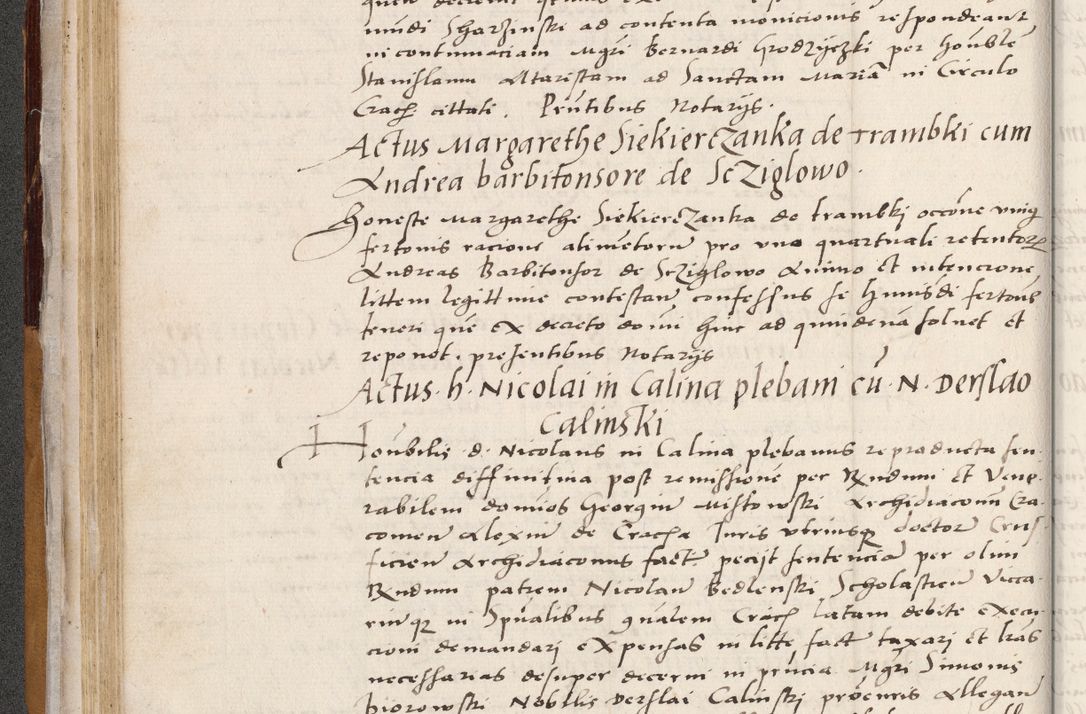 mundi Sharzinski ad contenta monicionis respondeant
in contumaciam Mgri Bernardi Grodzyczki per honble
Stanislaum Altaristam ad Sanctam Mariā in Circulo
Crac cittati. Pntibus Notarijs.
Actus Margarethe Siekierczanka de Trambki cum
Andrea barbitonsore de Scziglowo.
Honeste Margarethe Siekierczanka de trambki occōne
fertonis racione alimentorū pro una quartuali retentorꝝ
Andreas Barbitonsor de Scziglowo Animo et intencione
littem legittime contestan confessus se hmōi fertonis
teneri que ex decreto domi hinc ad quindenā solvet et
reponet. presentibus Notarijs
Actus h. Nicolai in Calina plebani cū N. Derslao
Calinski
Honbilis d. Nicolaus in Calina plebanus reproducta sen
tencia diffinitiva post remissionē per Rndum et Vene
rabilem dominos Georgiū Mistowski Archidiaconū Cra
comen Alexiū de Cracia Iuris utriusqꝫ doctor Crus
ficien Archidiaconus fact. pecijt sentenciā per olim
Rndum patrem Nicolaū Bedlenski Scholasticū Vicca
riūqꝫ in Spūalibus gnalem Crac latam debite execu
cioni demandari expensas in litte fact taxari et lras
necessarias desuper decerni in pñcia Mgri Simonis
Hiorowski Nobilis Derslai Calinski procuris Allegan